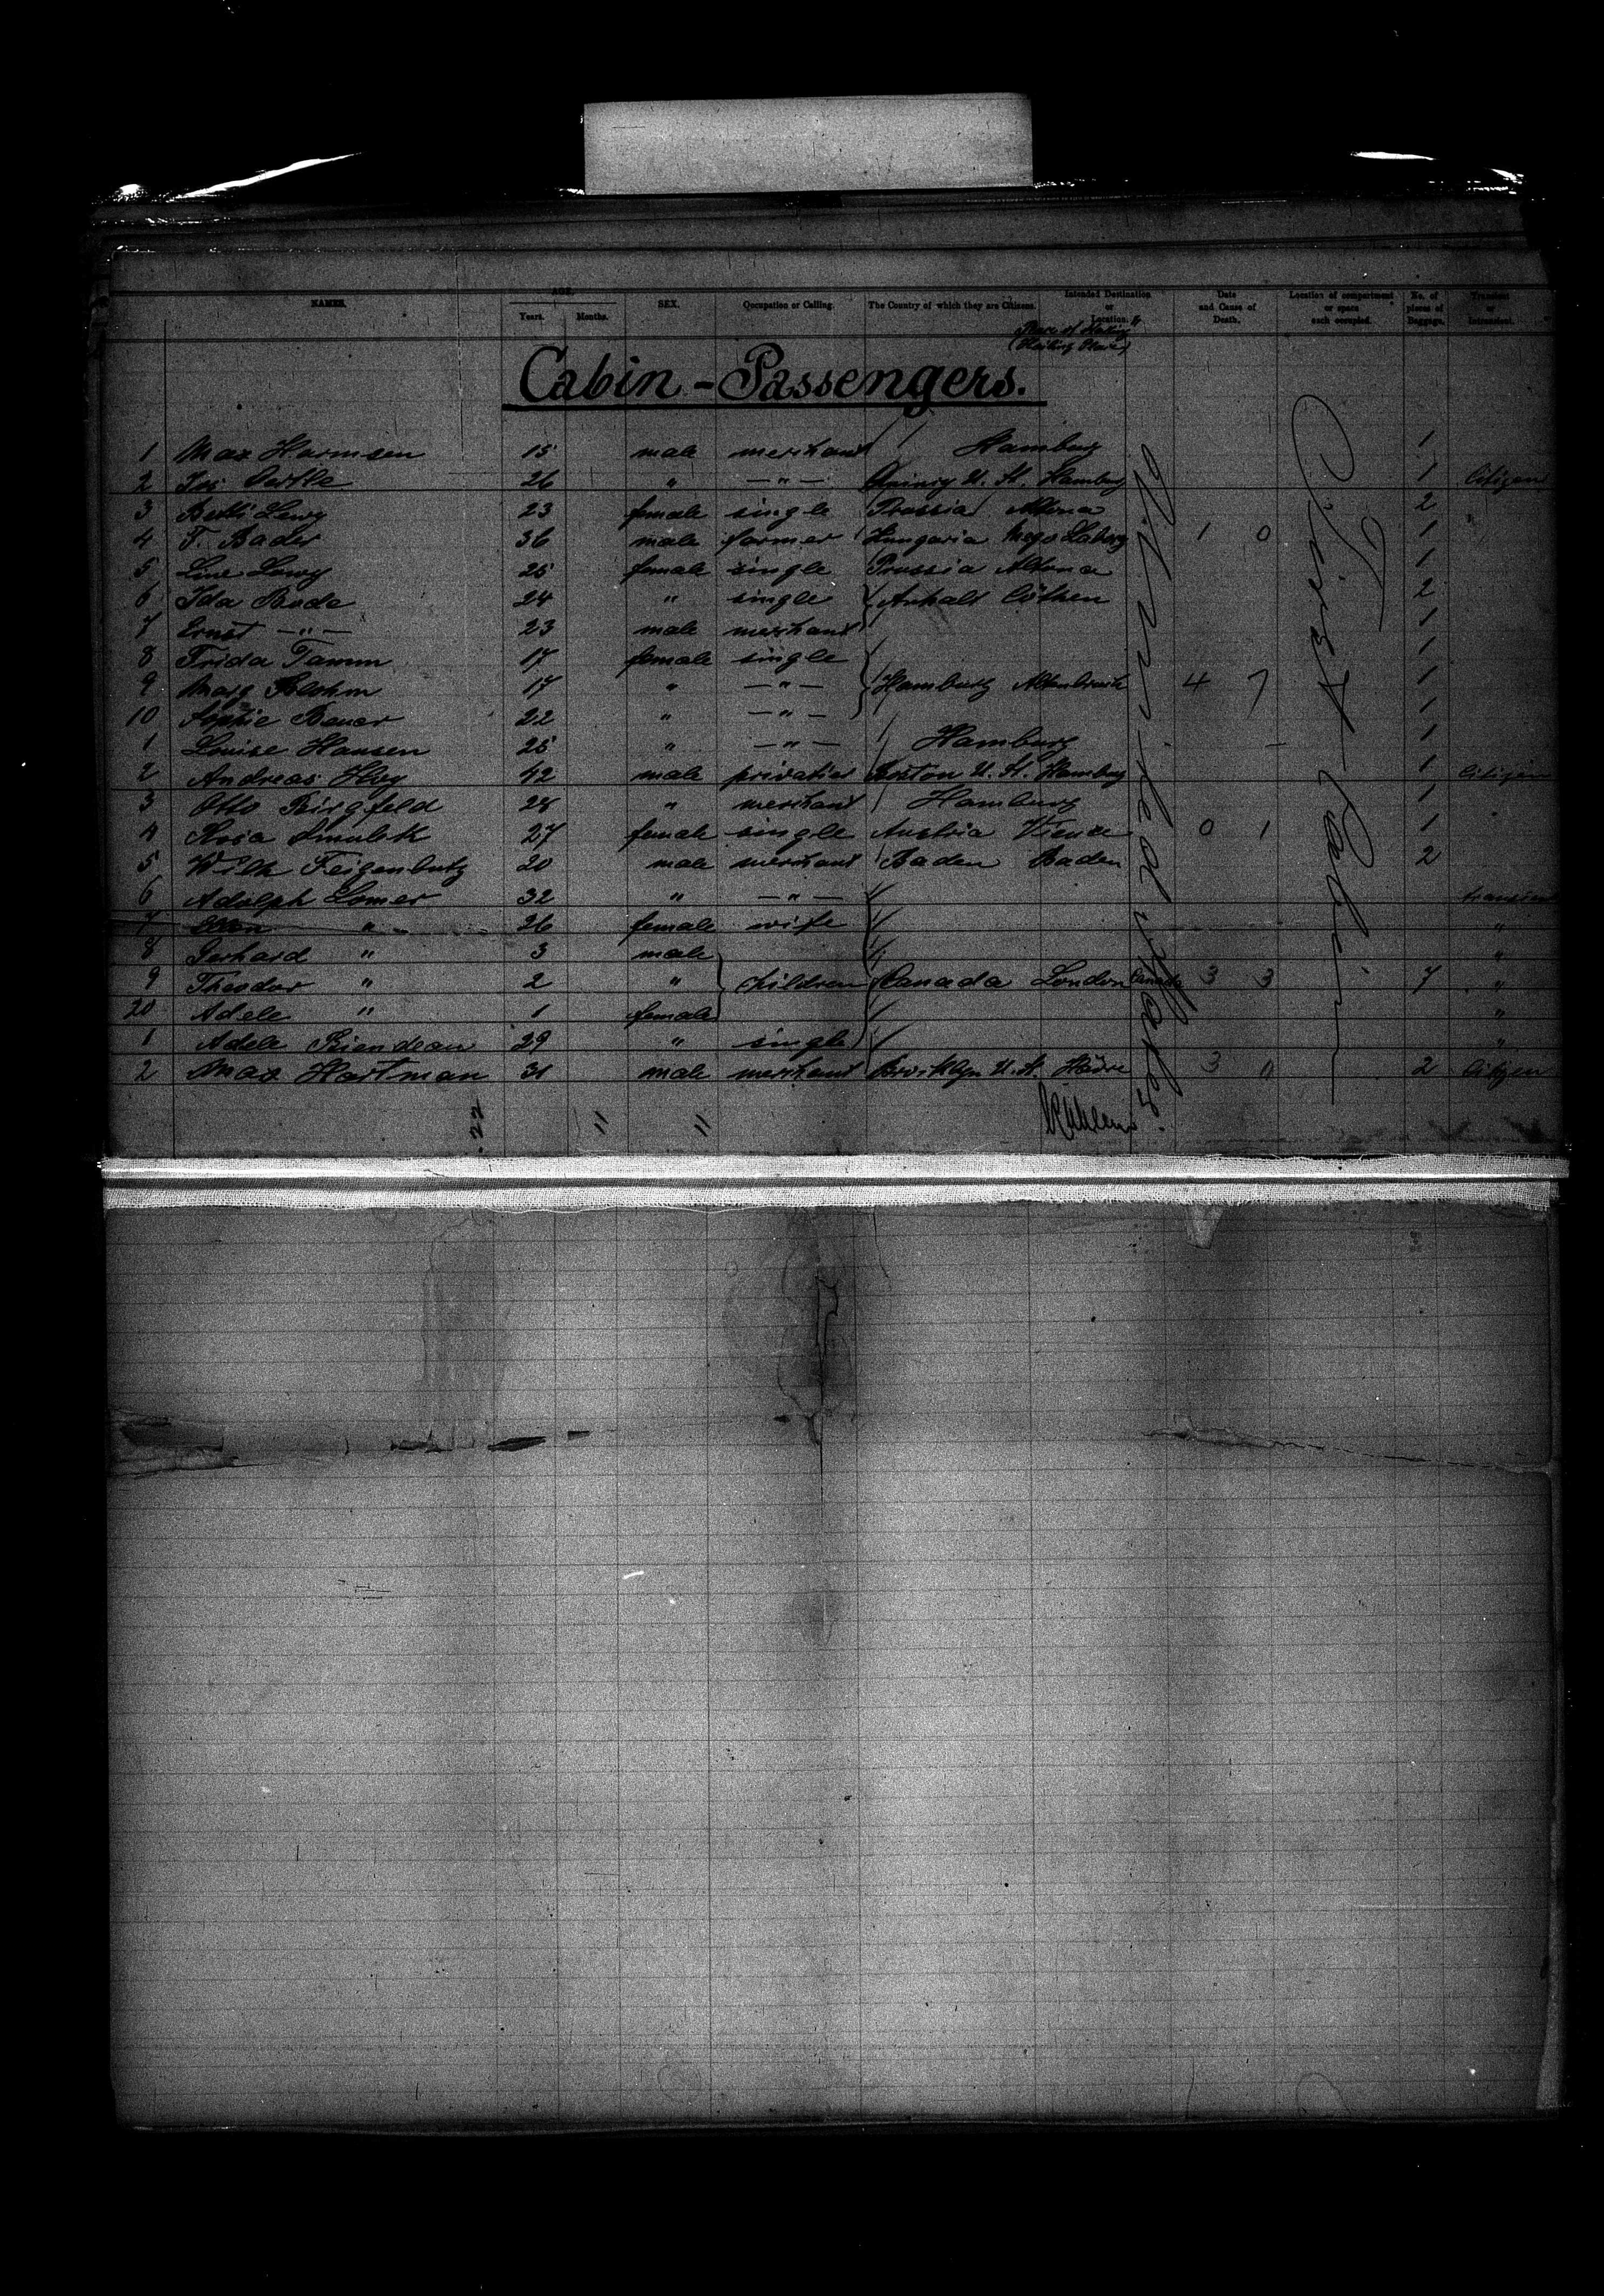 NAMES. AGE. Years. Months. SEX. Occupation or Calling. The Country of which they are Citizens. Intended Destination or Location. Date and Cause of Death. Location of compartment or space each occupied. No. of pieces of Baggage. Transient or Intransient.
Cabin-Passengers.
1 Max Harmsen 15 male merchant Hamburg 1
2 26 " —"— Quincy U. St. Hamburg 1 Citizen
3 Betti Levy 23 female single Prussia Altona 2
4 F. Bader 36 male farmer Hungaria 1 0 1
5 Line Levy 25 female single Prussia Altona 1
6 Ida Bode 24 " single Anhalt Cöthen 2
7 Ernst —"— 23 male merchant 1
8 Frida Tamm 17 female single 1
9 Marg Blohm 17 " —"— Hamburg Altenbruch 4 7 1
10 Sophie Bauer 22 " —"— 1
1 Louise Hansen 25 " —"— Hamburg 1
2 Andreas Hoy 42 male privatier Boston U. St. Hamburg 1 Citizen
3 Otto Birgfeld 28 " merchant Hamburg 1
4 Rosa 27 female single Austria Vienna 0 1 1
5 Wilh Feigenbutz 20 male merchant Baden Baden 2
6 Adolph Lomer 32 " —"— transient
7 " 26 female wife "
8 Gerhard " 3 male "
9 Theodor " 2 " children Canada London Canada 3 3 7 "
20 Adele " 1 female "
1 Adele 29 " single "
2 Max Hartman 31 male merchant Brooklyn U. St. 3 11 2 Citizen
United States.
First Cabin
22 11 11